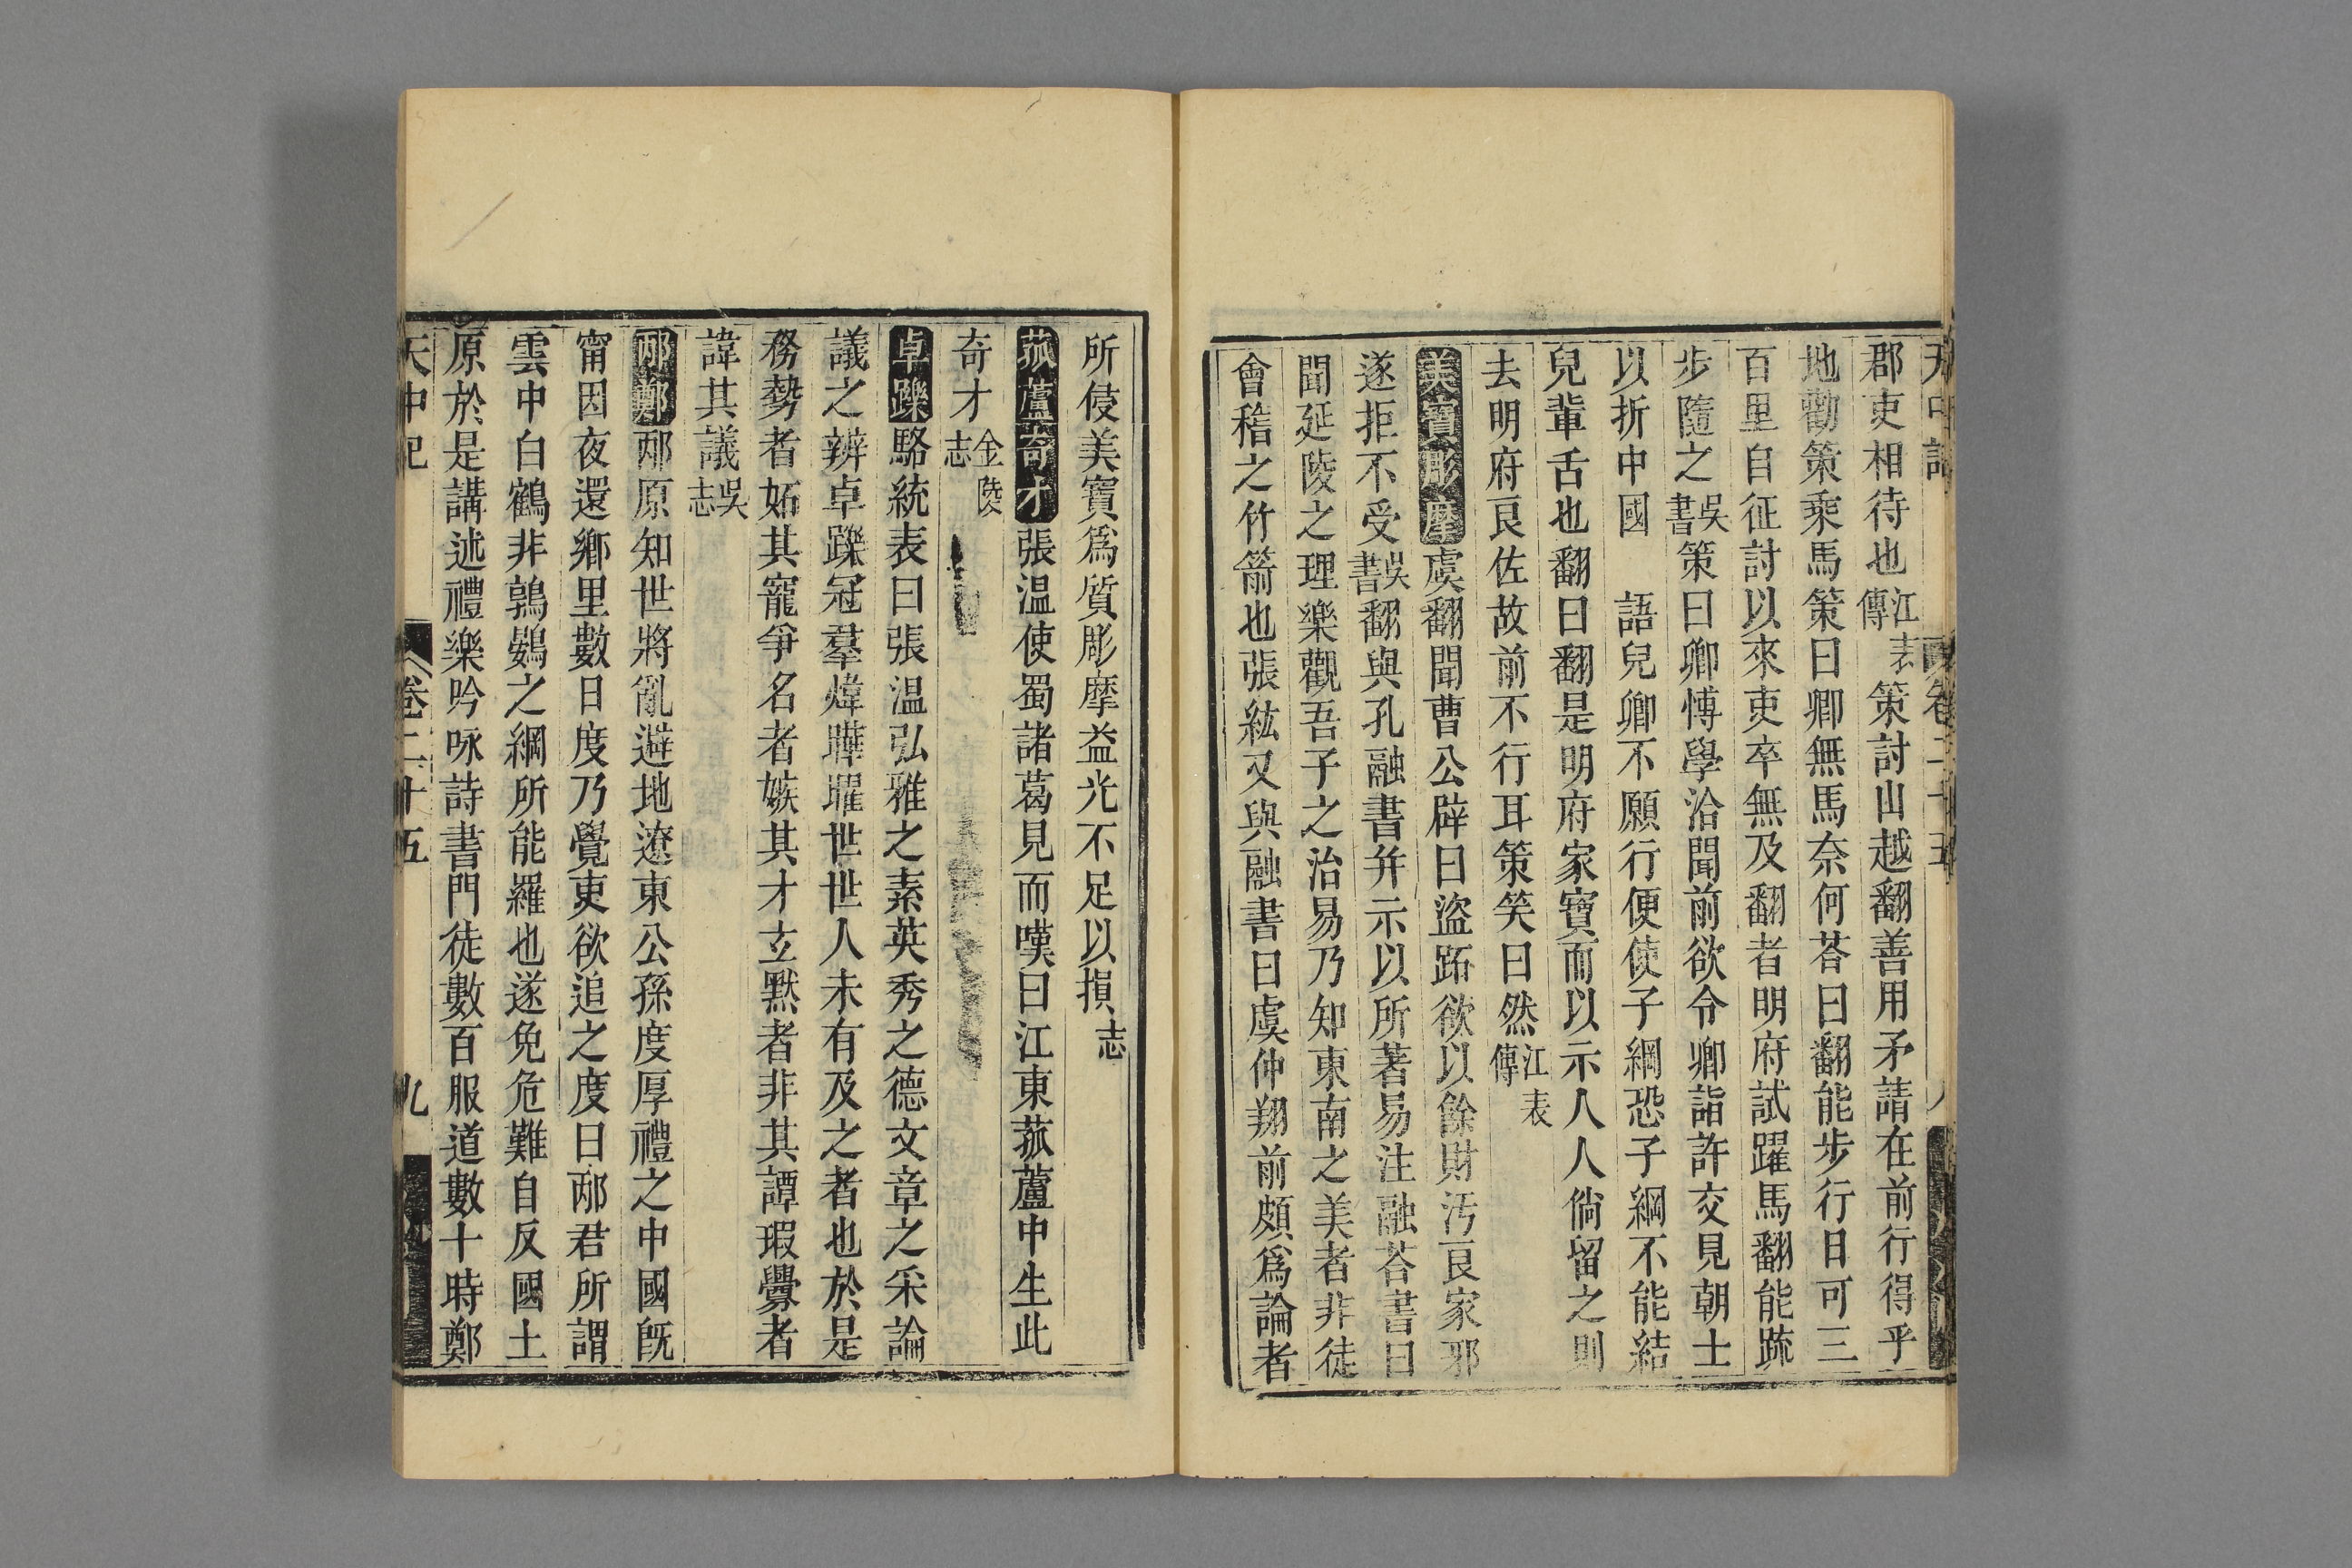 郡吏相待也江表傳策討山越翻善用矛請在前行得乎
地勸策乘馬策曰卿無馬奈何荅曰翻能步行日可三
百里自征討以來吏卒無及翻者明府試躍馬翻能䟽
步隨之吳書策曰卿愽學洽聞前欲令卿詣許交見朝士
以折中國 語兒卿不願行便使子綱恐子綱不能結
兒輩舌也翻曰翻是明府家寶而以示人人倘留之則
去明府良佐故前不行耳策笑曰然江表傳
美寶彫摩虞翻聞曹公辟曰盜跖欲以餘財汚良家邪
遂拒不受吳書翻與孔融書并示以所著易注融荅書曰
聞延陵之理樂觀吾子之治易乃知東南之美者非徒
會稽之竹箭也張紘又與融書曰虞仲翔前頗爲論者
所侵美寶爲質彫摩益光不足以損志
菰蘆奇才張温使蜀諸葛見而嘆曰江東菰蘆中生此
奇才金陵志
卓躒駱統表曰張温弘雅之素英秀之德文章之采論
議之辨卓躒冠羣煒曄曜世世人未有及之者也於是
務勢者妬其寵爭名者嫉其才玄默者非其譚瑕釁者
諱其議吳志
邴鄭邴原知世將亂避地遼東公孫度厚禮之中國旣
甯因夜還鄉里數日度乃覺吏欲追之度曰邴君所謂
雲中白鶴非鶉鷃之綱所能羅也遂免危難自反國土
原於是講述禮樂吟咏詩書門徒數百服道數十時鄭
天中記 卷二十五 九